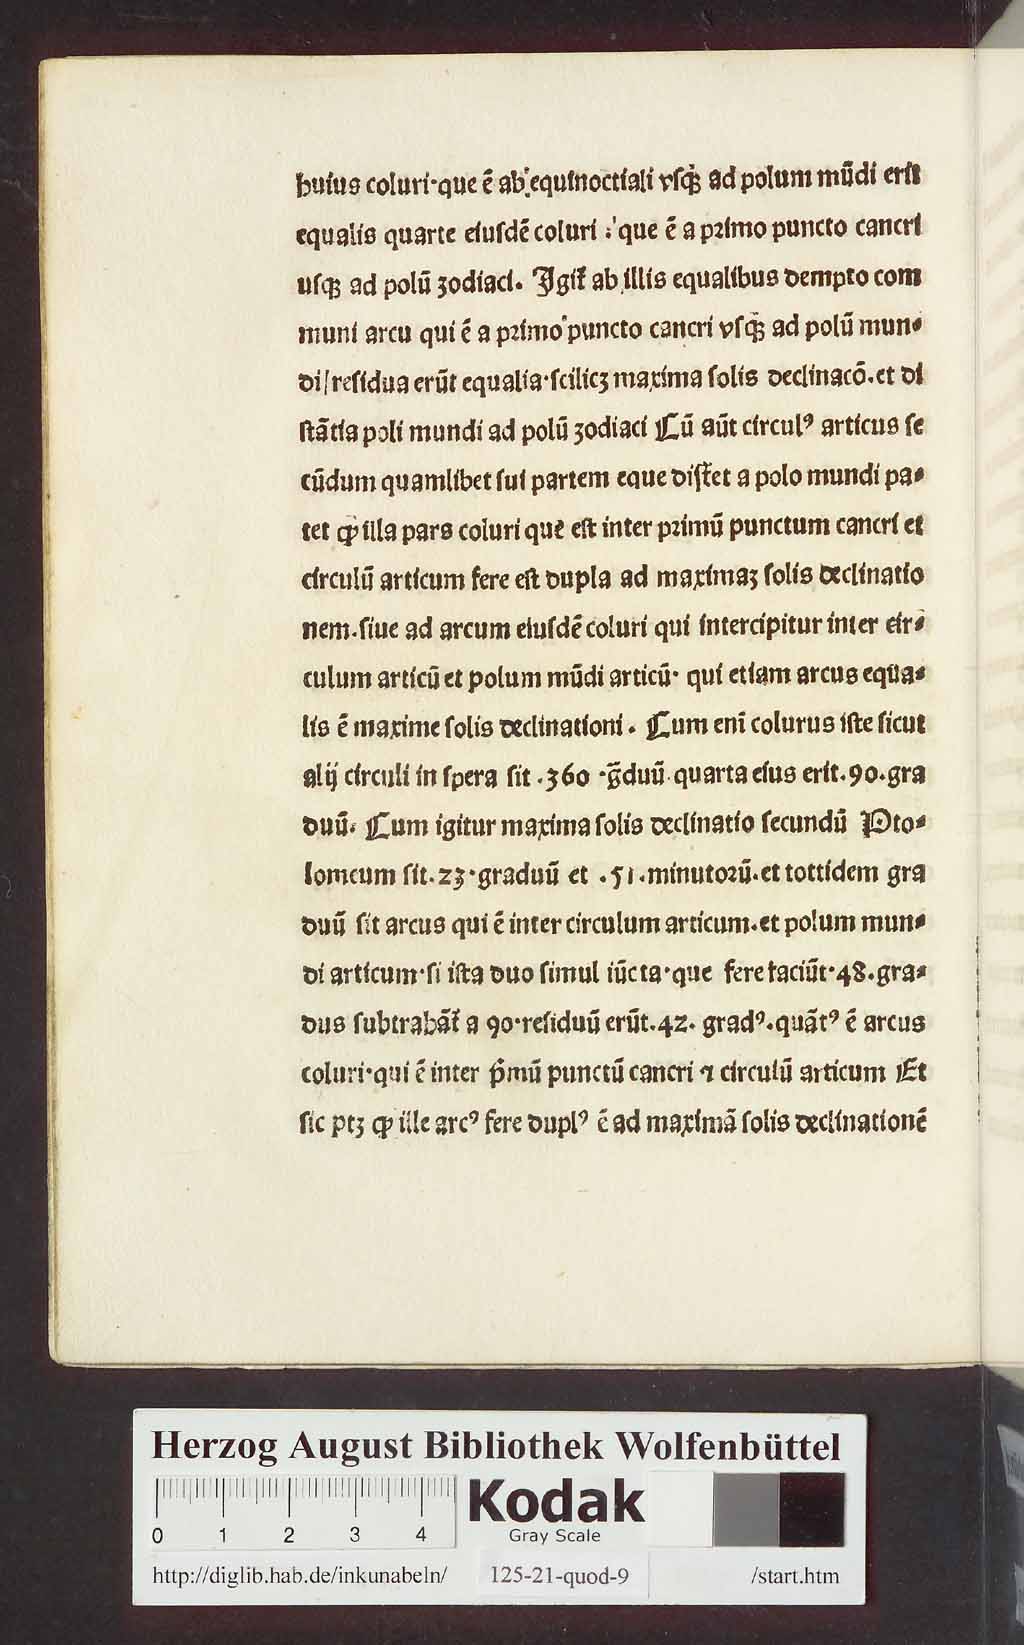 huius coluri·que ē ab equinoctiali vſqꝫ ad polum mūdi erit
equalis quarte eiuſdē coluri : que ē a primo puncto cancri
uſqꝫ ad polū zodiaci. Igit̄ ab illis equalibus dempto com
muni arcu qui ē a primo puncto cancri vſqꝫ ad polū mun⸗
di/reſidua erūt equalia·ſcilicꝫ maxima ſolis declinacō.et di
ſtātia poli mundi ad polū zodiaci Cū aūt circulꝰ articus ſe
cūdum quamlibet ſui partem eque diſtet a polo mundi pa⸗
tet ꝙ illa pars coluri que eſt inter primū punctum cancri et
circulū articum fere eſt dupla ad maximaꝫ ſolis declinatio
nem.ſiue ad arcum eiuſdē coluri qui intercipitur inter cir⸗
culum articū et polum mūdi articū· qui etiam arcus equa⸗
lis ē maxime ſolis declinationi. Cum eni̅ colurus iſte ſicut
alij circuli in ſpera ſit .360 ·g̅duū quarta eius erit.90.gra
duū. Cum igitur maxima ſolis declinatio ſecundū Pto⸗
lomeum ſit.23·graduū et .51.minutorū.et tottidem gra
duū ſit arcus qui ē inter circulum articum.et polum mun⸗
di articum·ſi iſta duo ſimul iūcta·que fere faciūt·48.gra⸗
dus ſubtrahāt̄ a 90·reſiduū erūt.42. gradꝰ.quātꝰ ē arcus
coluri·qui ē inter p̄mū punctū cancri ⁊ circulū articum Et
ſic ptꝫ ꝙ ille arcꝰ fere duplꝰ ē ad maximā ſolis declinationē
Herzog August Bibliothek Wolfenbüttel
0 1 2 3 4
Kodak
Gray Scale
http://diglib.hab.de/inkunabeln/ 125-21-quod-9 /start.htm